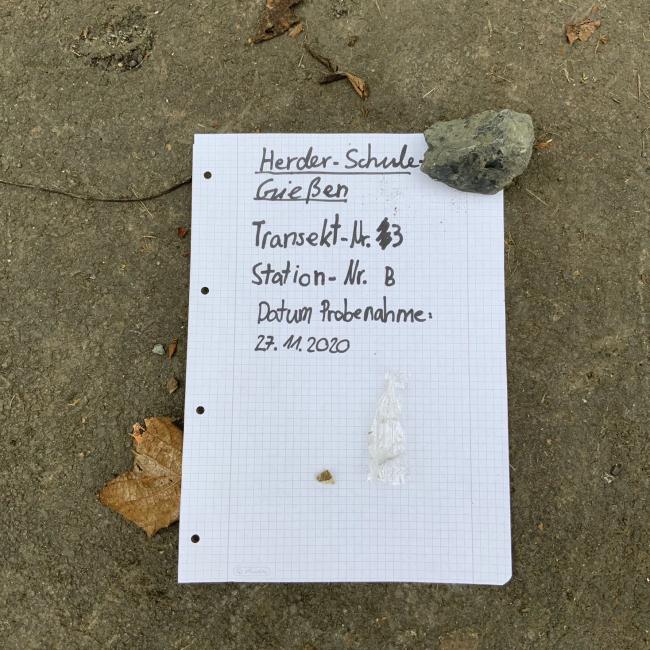 Herder-Schule-
Gießen
Transekt-Nr. 3
Station-Nr. B
Datum Probenahme:
27.11.2020